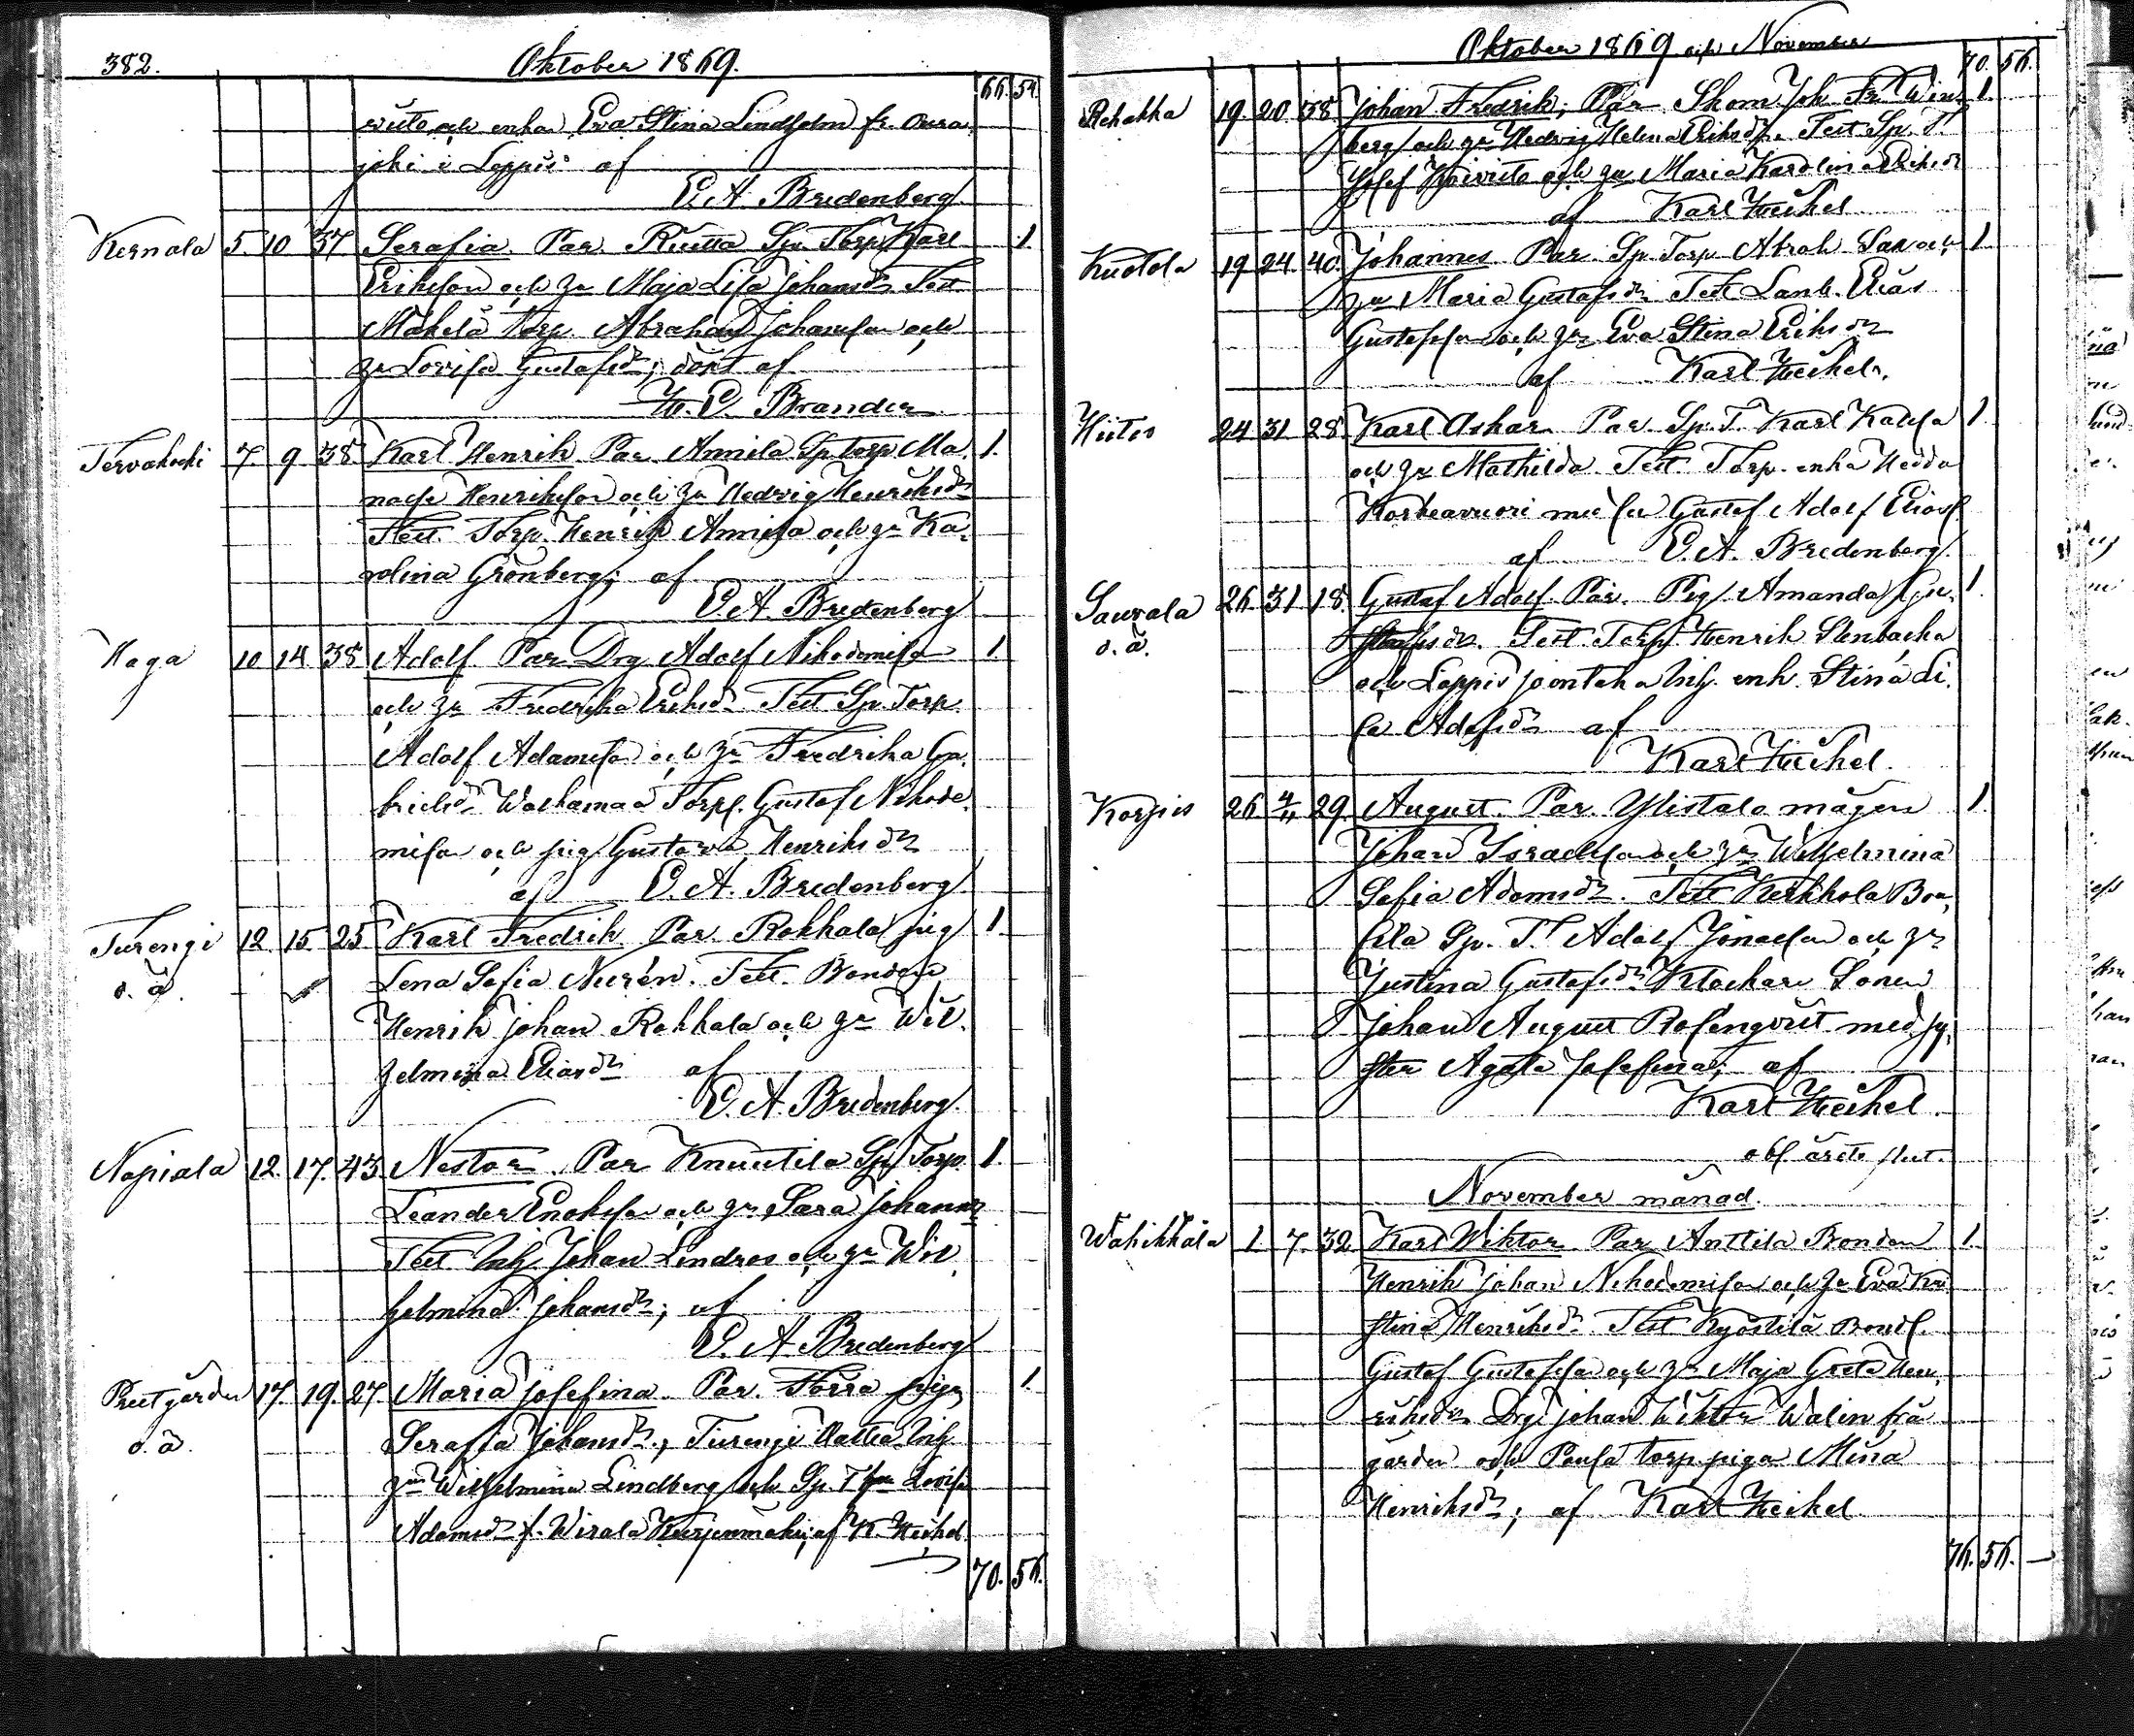 382. Oktober 1869.
66. 54.
och enkan Eva Stina Lindholm fr. Oura
joki i Loppis af
E. A. Bredenberg
Kernala 5. 10 37 Serafia. Par. Sp. Torp. Karl 1
Eriksson och hu Maja Lisa Johansdr. Test.
Mäkelä Torp. Abraham Johansson och
hu Lovisa Gustafsdr; döpt af
Brander
Tervakoski 7. 9. 38. Karl Henrik Par. Annila Sp. torp. Ma 1.
nasse Henriksson och hu Hedvig Henriksdr
Test. Torp. Henrik Annila och hu Ka
rolina Grönberg; af
E. A. Bredenberg
Haga 10 14 38 Adolf Par Drg Adolf Nikodemiss. 1.
och hu Fredrika Eriksdr Test Sp. Torp.
Adolf Adamsson och hu Fredrika Ga
brielsdr Torp. Gustaf Nikode
miss. och pig. Gustava Henriksdr
af E. A. Bredenberg
Turengi 12. 15. 25 Karl Fredrik Par. Rokkala pig 1.
o. ä. Lena Sofia Nurén. Test. Bonden
Henrik Johan Rokkala och hu Wil
helmina Eliasdr af
E. A. Bredenberg.
Napiala 12. 17. 43. Nestor. Par Knuutila Sp. Torp. 1.
Leander Enoksson och hu Sara Johansdr
Test. Inh. Johan Lindros och hu Wil
helmina Johansdr; af
E. A. Bredenberg
Prestgården 17. 19. 27. Maria Josefina. Par. Torra piga 1.
o. ä. Serafia Johansdr., Turengi Inh.
hun Wilhelmina Lindberg och Sp. T. hu Lovisa
Adamsdr f. Wirala Kurjenmäki; af K. Heikel
70. 56.
Oktober 1869 och November
70. 56.
Rehakka 19. 20. 38 Johan Fredrik; Par Skom. Joh. Fr. Win 1.
berg och hu Hedvig Helena Eriksdr. Test. Sp. T.
Josef Koivisto och hu Maria Karolina Eriksdr
af Karl Heikel
Kuotola 19 24. 40. Johannes Par. Sp. Torp. Abrah. Sax och 1
hu Maria Gustafsdr Test. Elias
Gustafsson och hu Eva Stina Eriksdr
af Karl Heikel.
Hiitis 24 31 28. Karl Oskar Par. Sp. T. Karl Kallsa 1
och hu Mathilda. Test. Torp. enka Hedda
Korkeavuori med son Gustaf Adolf Eliass.
af E. A. Bredenberg.
Saurala 26. 31 18. Gustaf Adolf Par. Pig. Amanda Gu 1.
o. ä. stafsdr. Test Torp. Henrik Stenbacka
och Loppis Inh. enk. Stina Li
sa Adolfsdr af
Karl Heikel.
Korpis 26 4/11 29. August. Par. Ylistalo mågen 1.
Johan Israelsson och hu Wilhelmina
Sofia Adamsdr. Test Kerkkola Bon
Sp. T. Adolf Jonasson och hu
Justina Gustafsdr Klockare Sonen
Johan August Rosenqvist med sy
ster Agata Josefina; af
Karl Heikel.
November månad.
Wähikkälä 1. 7. 32. Karl Wiktor. Par Anttila Bonden 1.
Henrik Johan Nikodemisson och hu Eva Kri
stina Henriksdr. Test Kyöstilä Bond.
Gustaf Gustafsson och hu Maja Greta Hen
riksdr Drg. Johan Wiktor Walin frå
gården och Torp. piga Mina
Henriksdr; af Karl Heikel
76. 56.